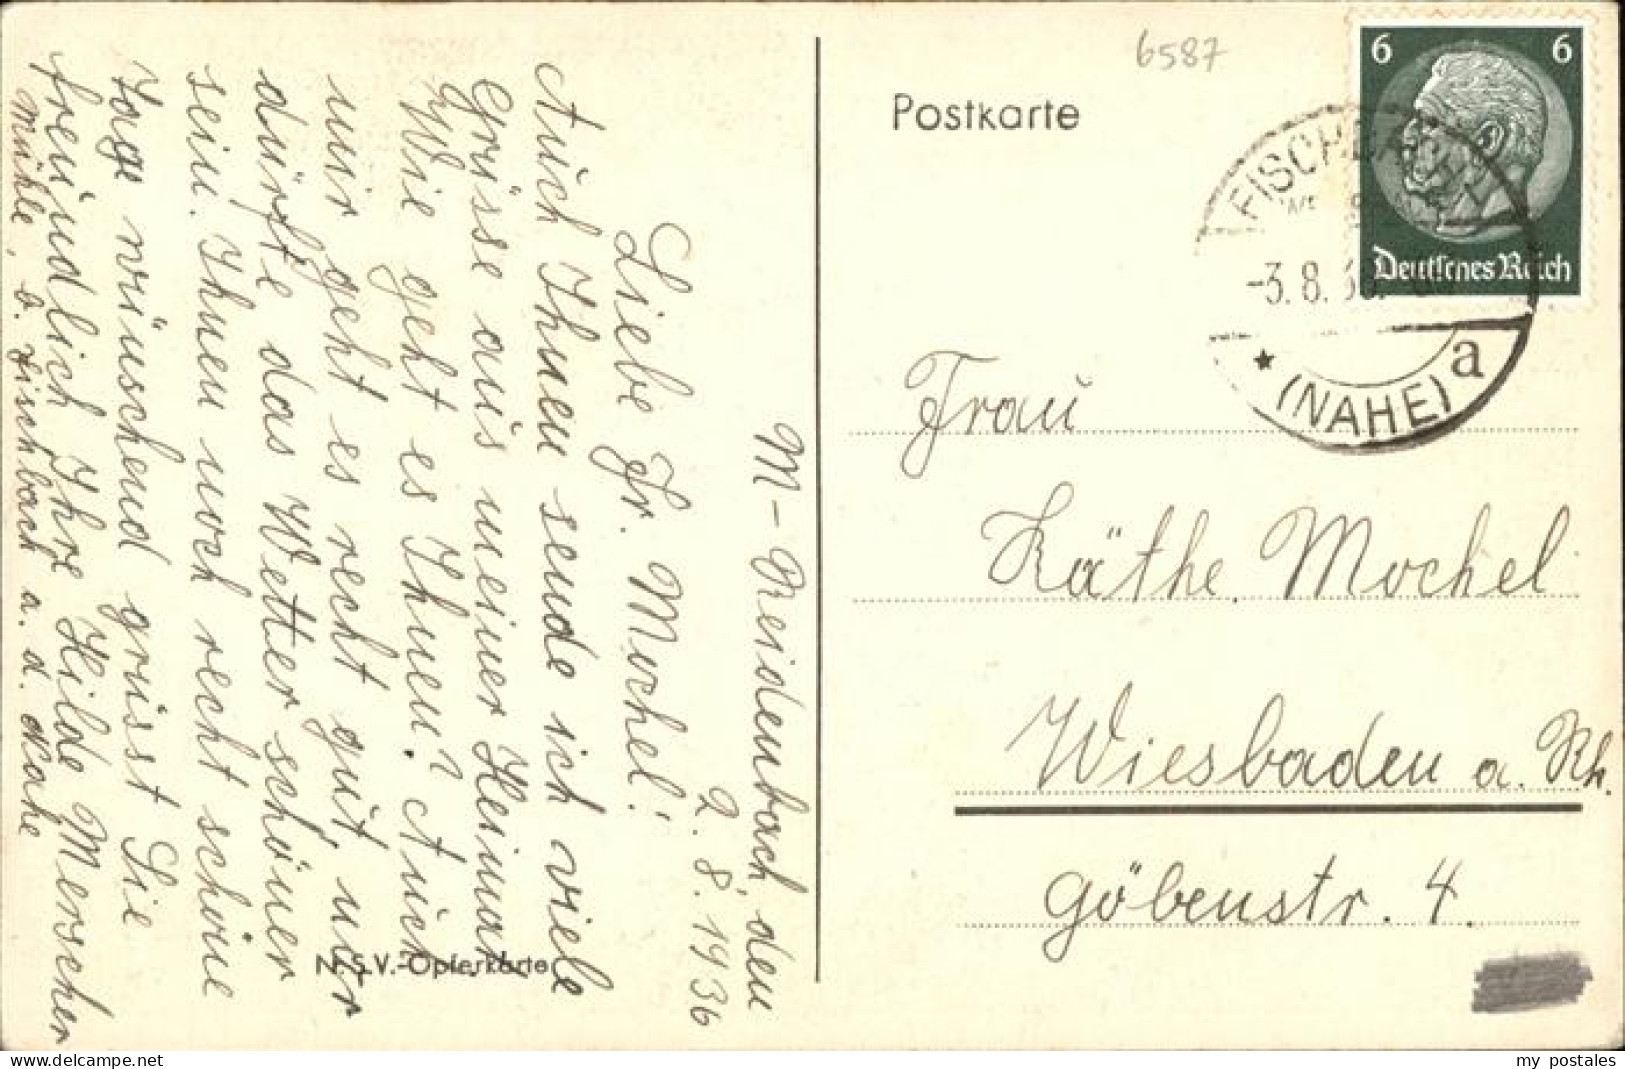 6587
Postkarte
6 6
Deutsches Reich
FISCHBACH
-3.8.36
(NAHE) a
M-Reidenbach, den
2. 8. 1936
Liebe Fr. Mochel!
Auch Ihnen sende ich viele
Grüsse aus meiner Heimat.
Wie geht es Ihnen? Auch
mir geht es recht gut, nur
dürfte das Wetter schöner
sein. Ihnen noch recht schöne
Tage wünschend grüsst Sie
freundlich Ihre Hilde Merscher
mühle, b. Fischbach a. d. Nahe
N.S.V.-Opferkarte
Frau
Käthe Mochel
Wiesbaden a. Rh.
Göbenstr. 4.
my_postales